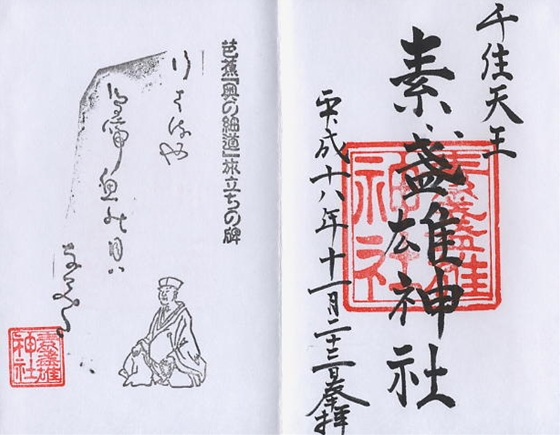 千住天王
素盞雄神社
平成十八年十一月二十三日参拝
素盞雄神社
芭蕉『奥の細道』旅立ちの碑
行くはるや
鳥啼魚の目は
なみだ
素盞雄神社